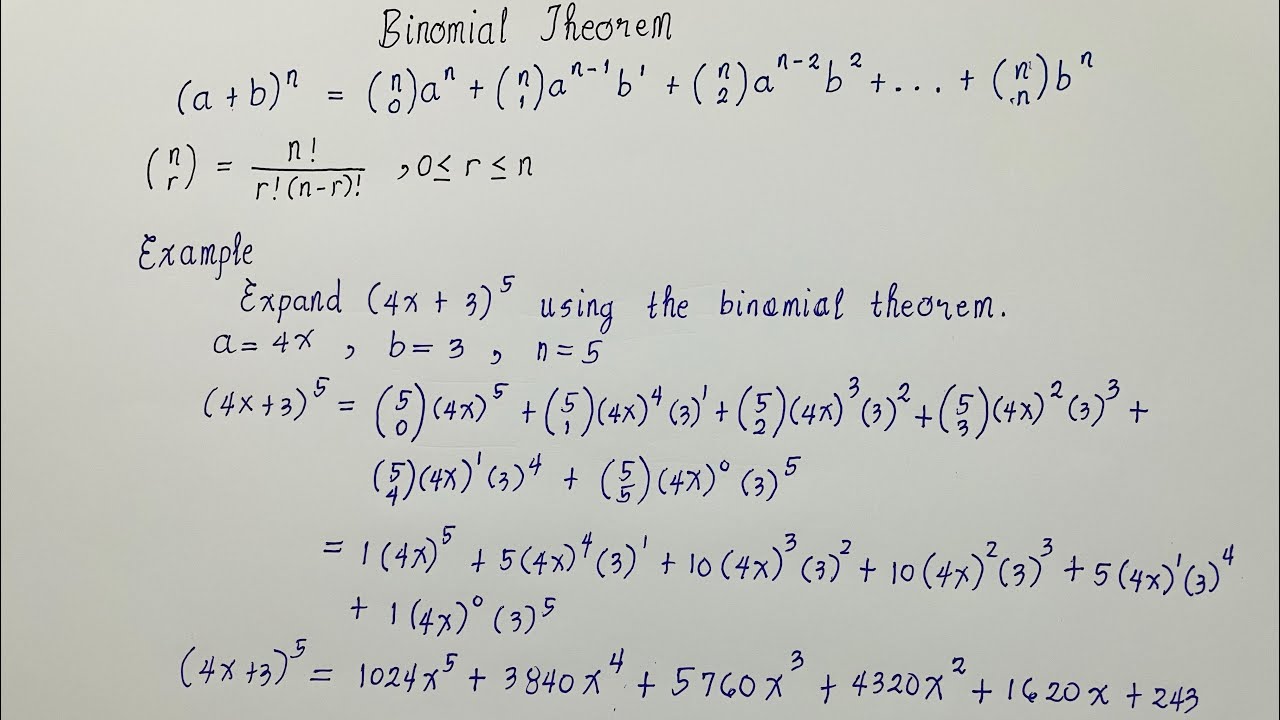 Binomial Theorem
(a + b)ⁿ = (n 0)aⁿ + (n 1)aⁿ⁻¹b¹ + (n 2)aⁿ⁻²b² + . . . + (n n)bⁿ
(n r) = n! / r!(n-r)! , 0 ≤ r ≤ n
Example
Expand (4x + 3)⁵ using the binomial theorem.
a = 4x , b = 3 , n = 5
(4x+3)⁵ = (5 0)(4x)⁵ + (5 1)(4x)⁴(3)¹ + (5 2)(4x)³(3)² + (5 3)(4x)²(3)³ +
(5 4)(4x)¹(3)⁴ + (5 5)(4x)⁰(3)⁵
= 1(4x)⁵ + 5(4x)⁴(3)¹ + 10(4x)³(3)² + 10(4x)²(3)³ + 5(4x)¹(3)⁴
+ 1(4x)⁰(3)⁵
(4x+3)⁵ = 1024x⁵ + 3840x⁴ + 5760x³ + 4320x² + 1620x + 243